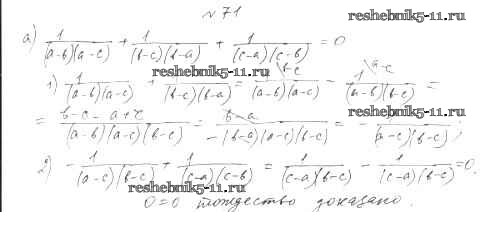 № 71
reshebnik5-11.ru
а) 1/((a-b)(a-c)) + 1/((b-c)(b-a)) + 1/((c-a)(c-b)) = 0
reshebnik5-11.ru
1) 1/((a-b)(a-c)) + 1/((b-c)(b-a)) = 1\b-c/((a-b)(a-c)) - 1\a-c/((a-b)(b-c)) =
= (b-c-a+c)/((a-b)(a-c)(b-c)) = (b-a)/(-(b-a)(a-c)(b-c)) = - 1/((a-c)(b-c));
reshebnik5-11.ru
2) - 1/((a-c)(b-c)) + 1/((c-a)(c-b)) = 1/((c-a)(b-c)) - 1/((c-a)(b-c)) = 0.
reshebnik5-11.ru
0=0 тождество доказано.